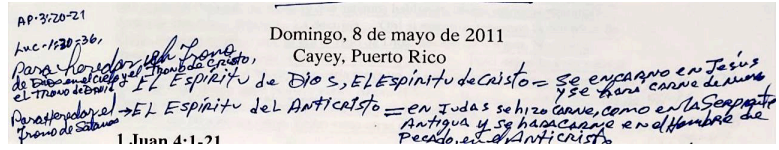 AP. 3:20-21
Luc. 1:30-36,
Domingo, 8 de mayo de 2011
Cayey, Puerto Rico
Para heredar el Trono
de Dios en el cielo y el Trono de Cristo,
el Trono de David
EL ESPíRitu de DioS, EL ESpíRitu de CRisto = Se encarnó en Jesús
y se hará carne de nuevo
Para Heredar el → EL ESPíRitu deL ANtiCRISto = en Judas se hizo CARNe, como en la SeRpiente
Trono de Satanas
Antigua y se haRá CARNe en el Hombre de
Pecado, en el Anticristo
1 Juan 4:1-21